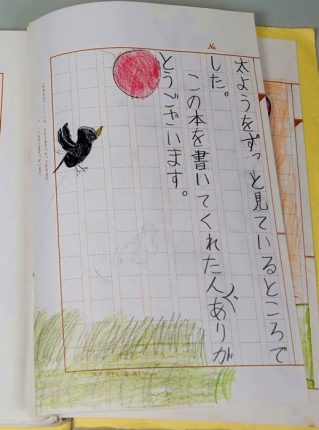 太ようをずっと見ているところで
した。
この本を書いてくれた人ありが
とうございます。
№